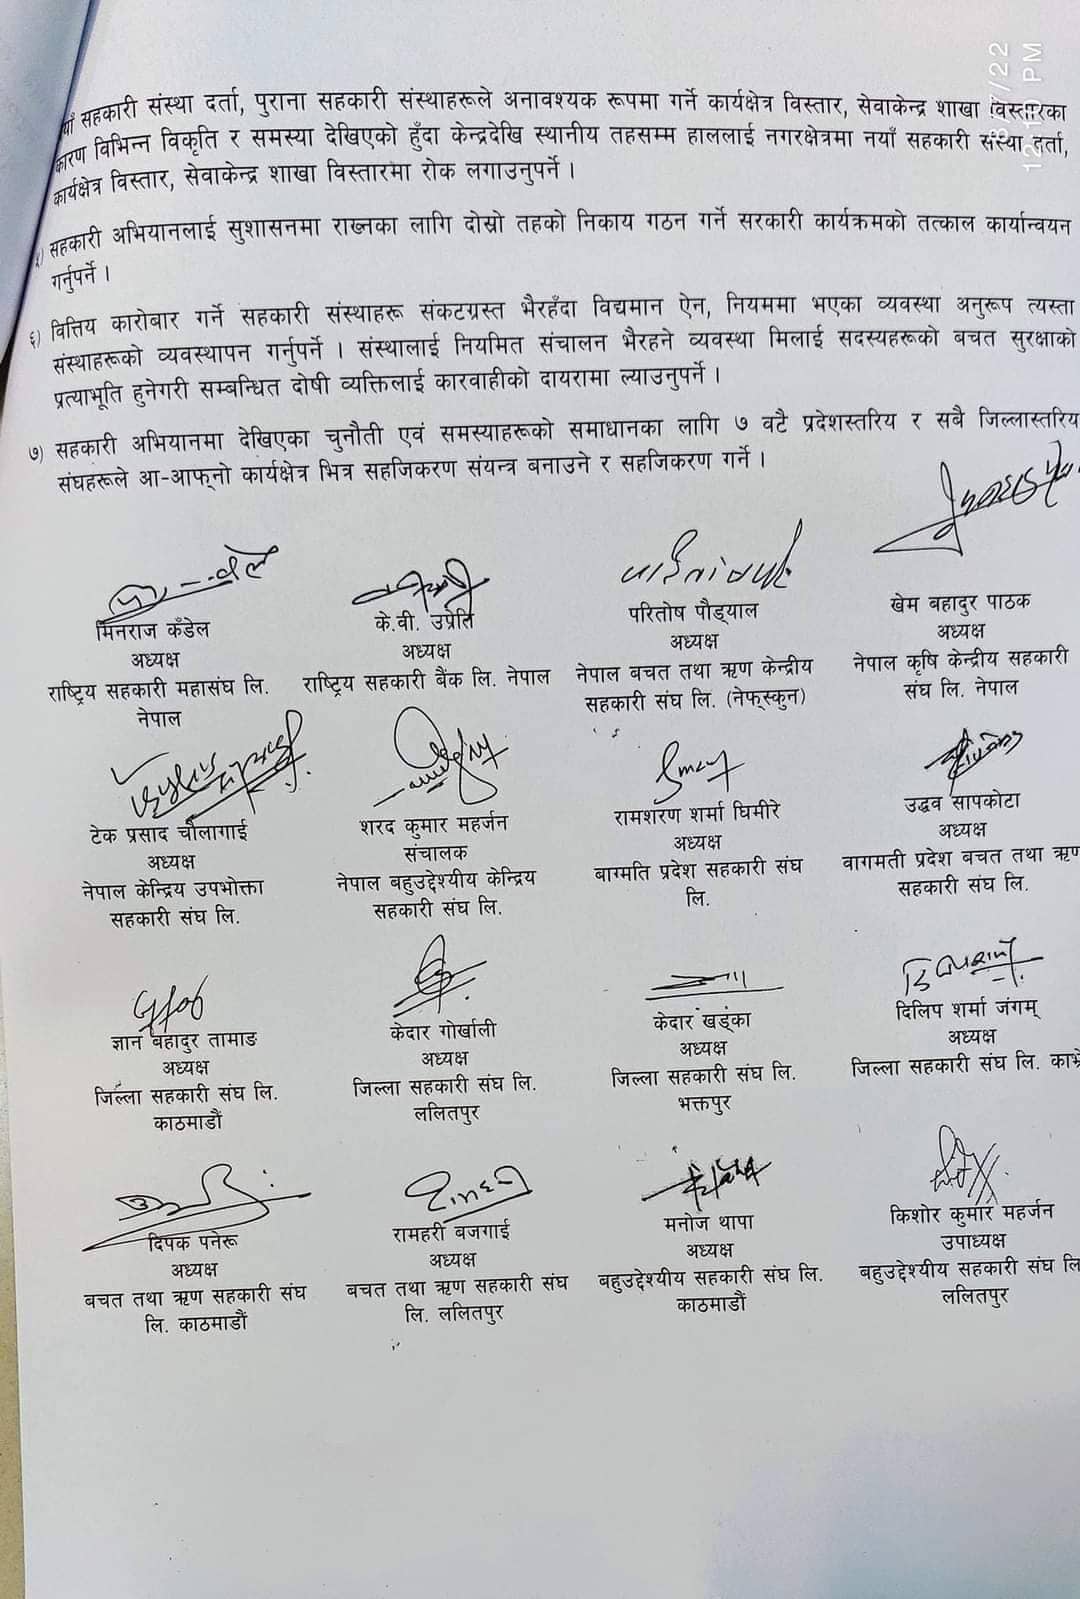 सहकारी संस्था दर्ता, पुराना सहकारी संस्थाहरूले अनावश्यक रूपमा गर्ने कार्यक्षेत्र विस्तार, सेवाकेन्द्र शाखा विस्तारका
कारण विभिन्न विकृति र समस्या देखिएको हुँदा केन्द्रदेखि स्थानीय तहसम्म हाललाई नगरक्षेत्रमा नयाँ सहकारी संस्था दर्ता,
कार्यक्षेत्र विस्तार, सेवाकेन्द्र शाखा विस्तारमा रोक लगाउनुपर्ने ।
सहकारी अभियानलाई सुशासनमा राख्नका लागि दोस्रो तहको निकाय गठन गर्ने सरकारी कार्यक्रमको तत्काल कार्यान्वयन
गर्नुपर्ने ।
६) वित्तिय कारोबार गर्ने सहकारी संस्थाहरू संकटग्रस्त भैरहँदा विद्यमान ऐन, नियममा भएका व्यवस्था अनुरूप त्यस्ता
संस्थाहरूको व्यवस्थापन गर्नुपर्ने । संस्थालाई नियमित संचालन भैरहने व्यवस्था मिलाई सदस्यहरूको बचत सुरक्षाको
प्रत्याभूति हुनेगरी सम्बन्धित दोषी व्यक्तिलाई कारवाहीको दायरामा ल्याउनुपर्ने ।
७) सहकारी अभियानमा देखिएका चुनौती एवं समस्याहरूको समाधानका लागि ७ वटै प्रदेशस्तरिय र सबै जिल्लास्तरिय
संघहरूले आ-आफ्नो कार्यक्षेत्र भित्र सहजिकरण संयन्त्र बनाउने र सहजिकरण गर्ने ।
मिनराज कँडेल के.वी. उप्रेति परितोष पौड्याल खेम बहादुर पाठक
अध्यक्ष अध्यक्ष अध्यक्ष अध्यक्ष
राष्ट्रिय सहकारी महासंघ लि. राष्ट्रिय सहकारी बैंक लि. नेपाल नेपाल बचत तथा ऋण केन्द्रीय नेपाल कृषि केन्द्रीय सहकारी
नेपाल सहकारी संघ लि. (नेफ्स्कुन) संघ लि. नेपाल
टेक प्रसाद चौलागाई शरद कुमार महर्जन रामशरण शर्मा घिमीरे उद्धव सापकोटा
अध्यक्ष संचालक अध्यक्ष अध्यक्ष
नेपाल केन्द्रिय उपभोक्ता नेपाल बहुउद्देश्यीय केन्द्रिय बाग्मति प्रदेश सहकारी संघ वागमती प्रदेश बचत तथा ऋण
सहकारी संघ लि. सहकारी संघ लि. लि. सहकारी संघ लि.
ज्ञान बहादुर तामाङ केदार गोर्खाली केदार खड्का दिलिप शर्मा जंगम्
अध्यक्ष अध्यक्ष अध्यक्ष अध्यक्ष
जिल्ला सहकारी संघ लि. जिल्ला सहकारी संघ लि. जिल्ला सहकारी संघ लि. जिल्ला सहकारी संघ लि. काभ्रे
काठमाडौं ललितपुर भक्तपुर
दिपक पनेरू रामहरी बजगाई मनोज थापा किशोर कुमार महर्जन
अध्यक्ष अध्यक्ष अध्यक्ष उपाध्यक्ष
बचत तथा ऋण सहकारी संघ बचत तथा ऋण सहकारी संघ बहुउद्देश्यीय सहकारी संघ लि. बहुउद्देश्यीय सहकारी संघ लि
लि. काठमाडौं लि. ललितपुर काठमाडौं ललितपुर